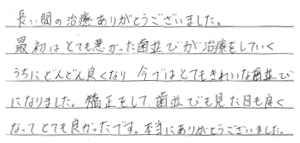 長い間の治療ありがとうございました。
最初はとても悪かった歯並びが治療をしていく
うちにどんどん良くなり 今ではとてもきれいな歯並び
になりました。矯正をして歯並びも見た目も良く
なってとても良かったです。本当にありがとうございました。